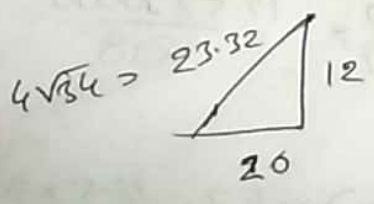 4√34 = 23.32
12
20